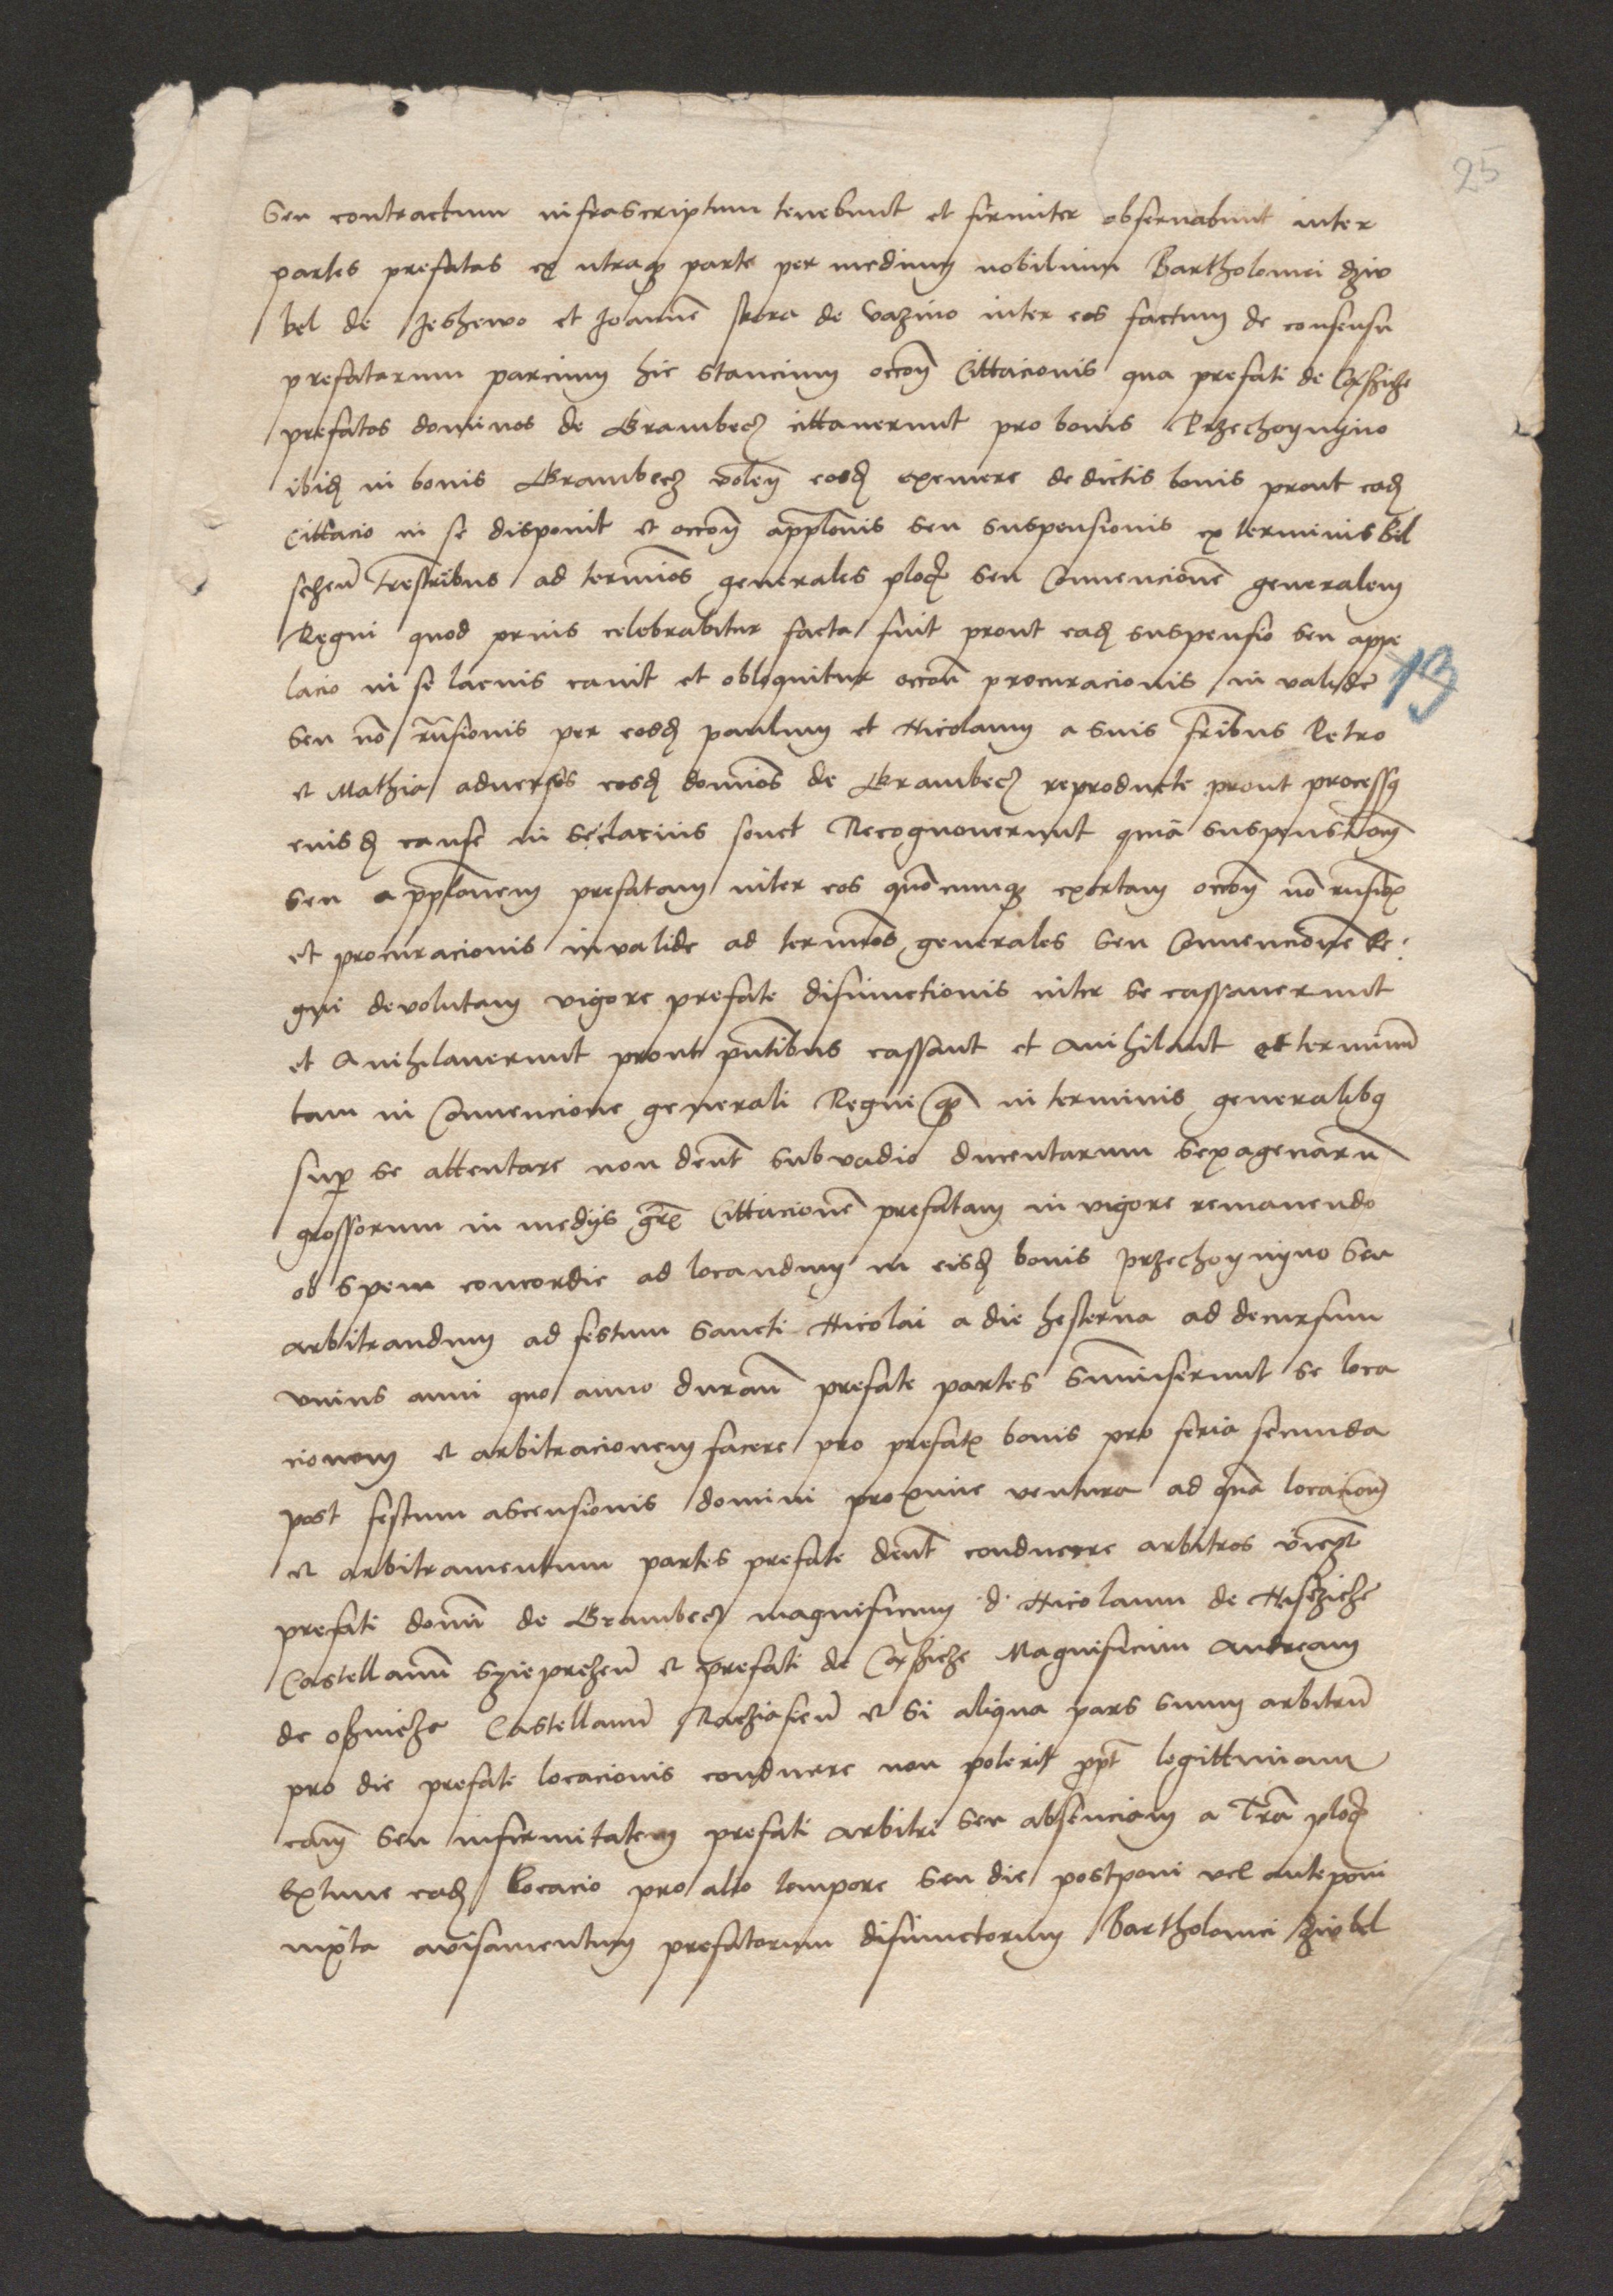 25
seu contractum infrascriptum tenebunt et firmiter observabunt inter
partes prefatas ex utraq parte per medium nobilium Bartholomei dziw
bel de Jeshewo et Joannē skora de Gazino inter eos factum de consensu
prefatarum parcium hic stancium occoē Cittacionis qua prefati de
prefatos dominos de Grambecz cittaverunt pro bonis Przechoynyno
ibid in bonis Grambecz volen eosd exemere de dictis bonis prout ead
Cittacio in se disponit et occoē applonis seu suspensionis ex terminis biel
scheñ Trestribus ad terminos generales ploceñ seu Convencionē generalem
Regni quod prius celebrabitur facta fuit prout ead suspensio seu appe
lacio in se lacius canit et obloquitur occoē procuracionis in valide 13
seu nō per eosd paulum et Nicolaum a suis fribus Petro
et Mathia adversos eosd dominos de Grambecz reproducte prout processq
euisd cause in se lacius sonet Recognoverunt quia suspensionem
seu applonem prefatam inter eos quōcumq exortam occoē nō
et procuracionis in valide ad terminos generales seu Convencionē Re:
gni devolutam vigore prefate disiunctionis inter se cassaverunt
et Anihilaverunt prout pntibus cassant et Anihilant et terminū
tam in Convencione generali Regni qm in terminis generalibq
sup se attentare non dent sub vadio ducentarum sexagenarū
grossorum in medys grē Cittacionē prefatam in vigore remanendo
ob spem concordie ad locandum in eisd bonis przechoynyno seu
arbitrandum ad festum Sancti Nicolai a die hesterna ad decursum
unius anni quo anno durañ prefate partes summiserunt se loca
cionem et arbitracionem facere pro prefatis bonis pro feria secunda
post festum ascensionis domini proxime ventura ad quā locacionē
et arbitramentum partes prefate dent conducere arbitros
prefati domī de Grambecz magnificum d Nicolaum de
Castellanū syieprcheñ et prefati de Magnificum Andream
de Castellanū Racziaσieñ et si aliqua pars suum arbitrū
pro die prefate locacionis conducere non poterit ppt legittimam
cam seu infirmitatem prefati arbitri seu absenciam a Trā ploceñ
Extunc ead locacio pro alio tempore seu die postponi vel anteponi
iuxta avisamentum prefatorum disiunctorum Bartholomei dziwbel